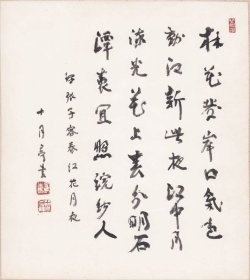 林花發岸口氣色
動江新此夜江中月
流光花上春分明石
潭裏宜照浣紗人
張子容春江花月夜
十月